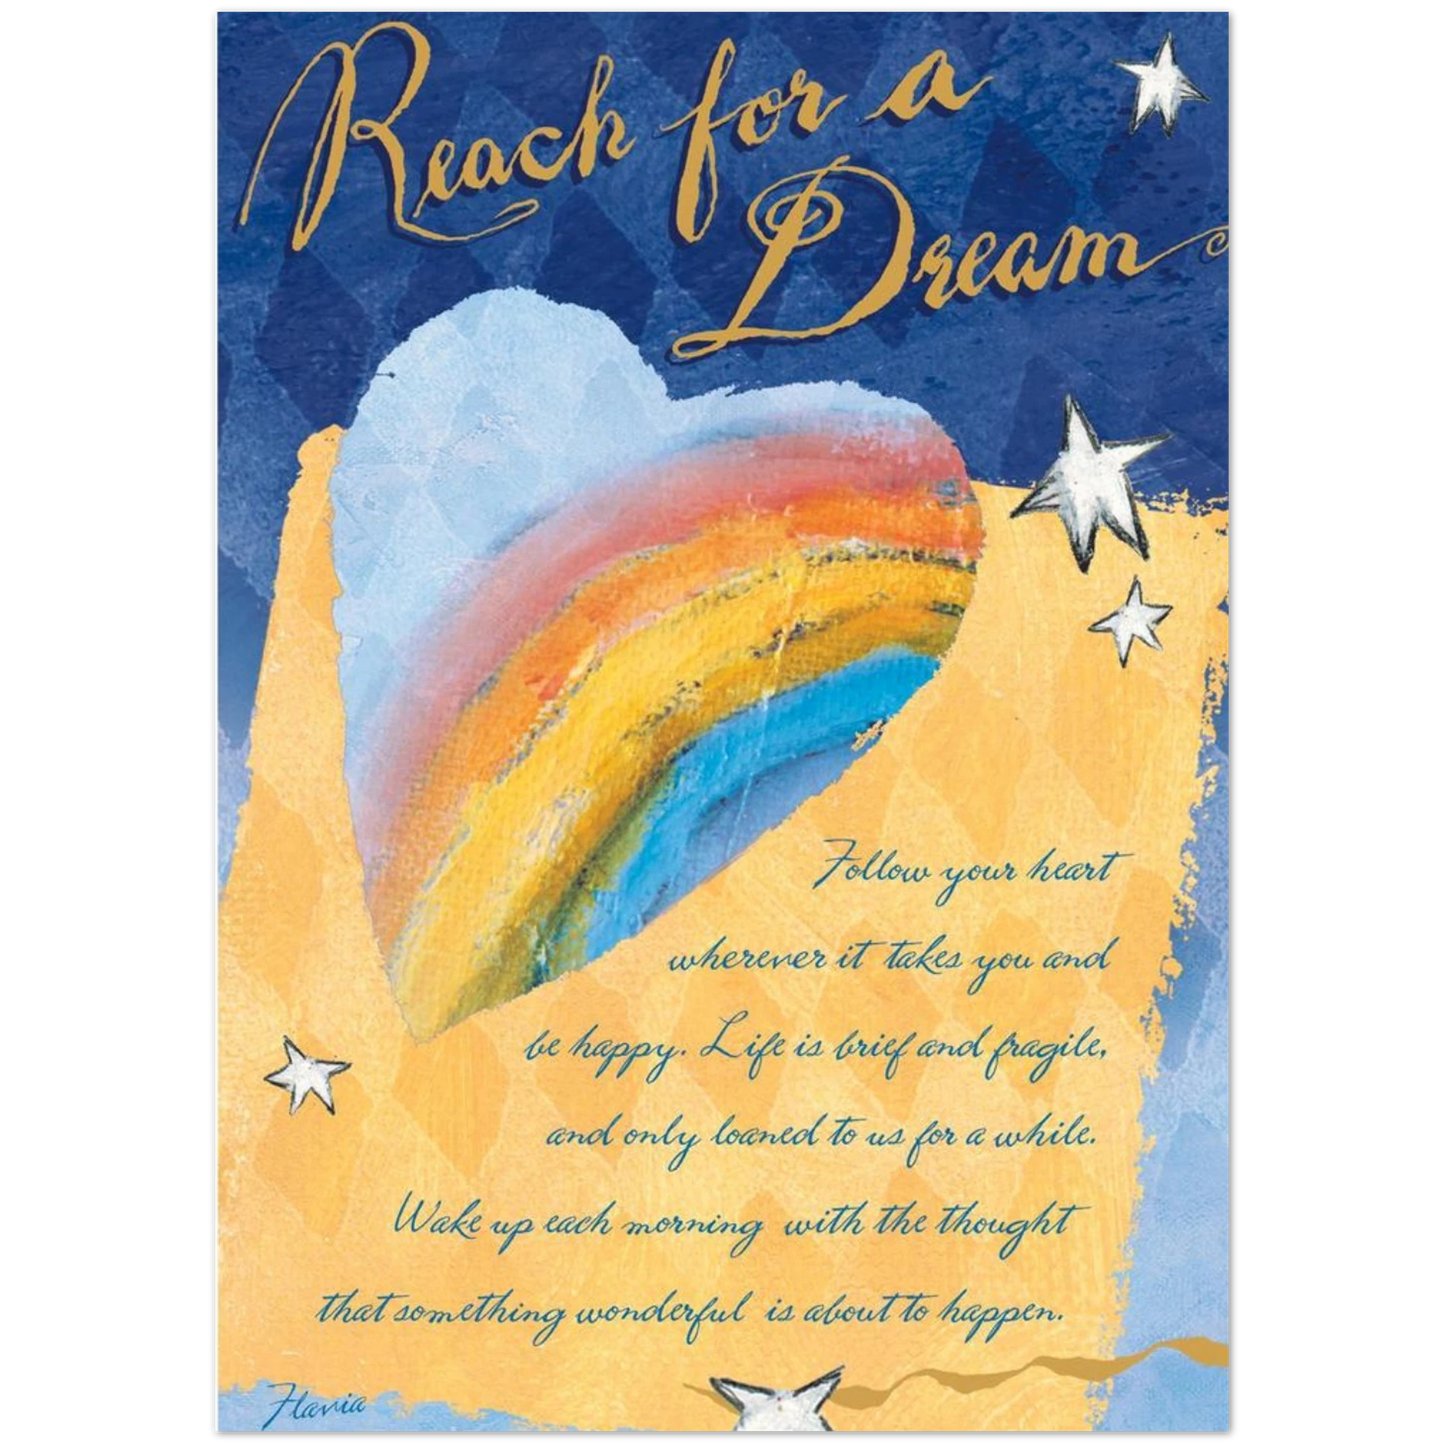 Reach for a
Dream
Follow your heart
wherever it takes you and
be happy. Life is brief and fragile,
and only loaned to us for a while.
Wake up each morning with the thought
that something wonderful is about to happen.
Flavia